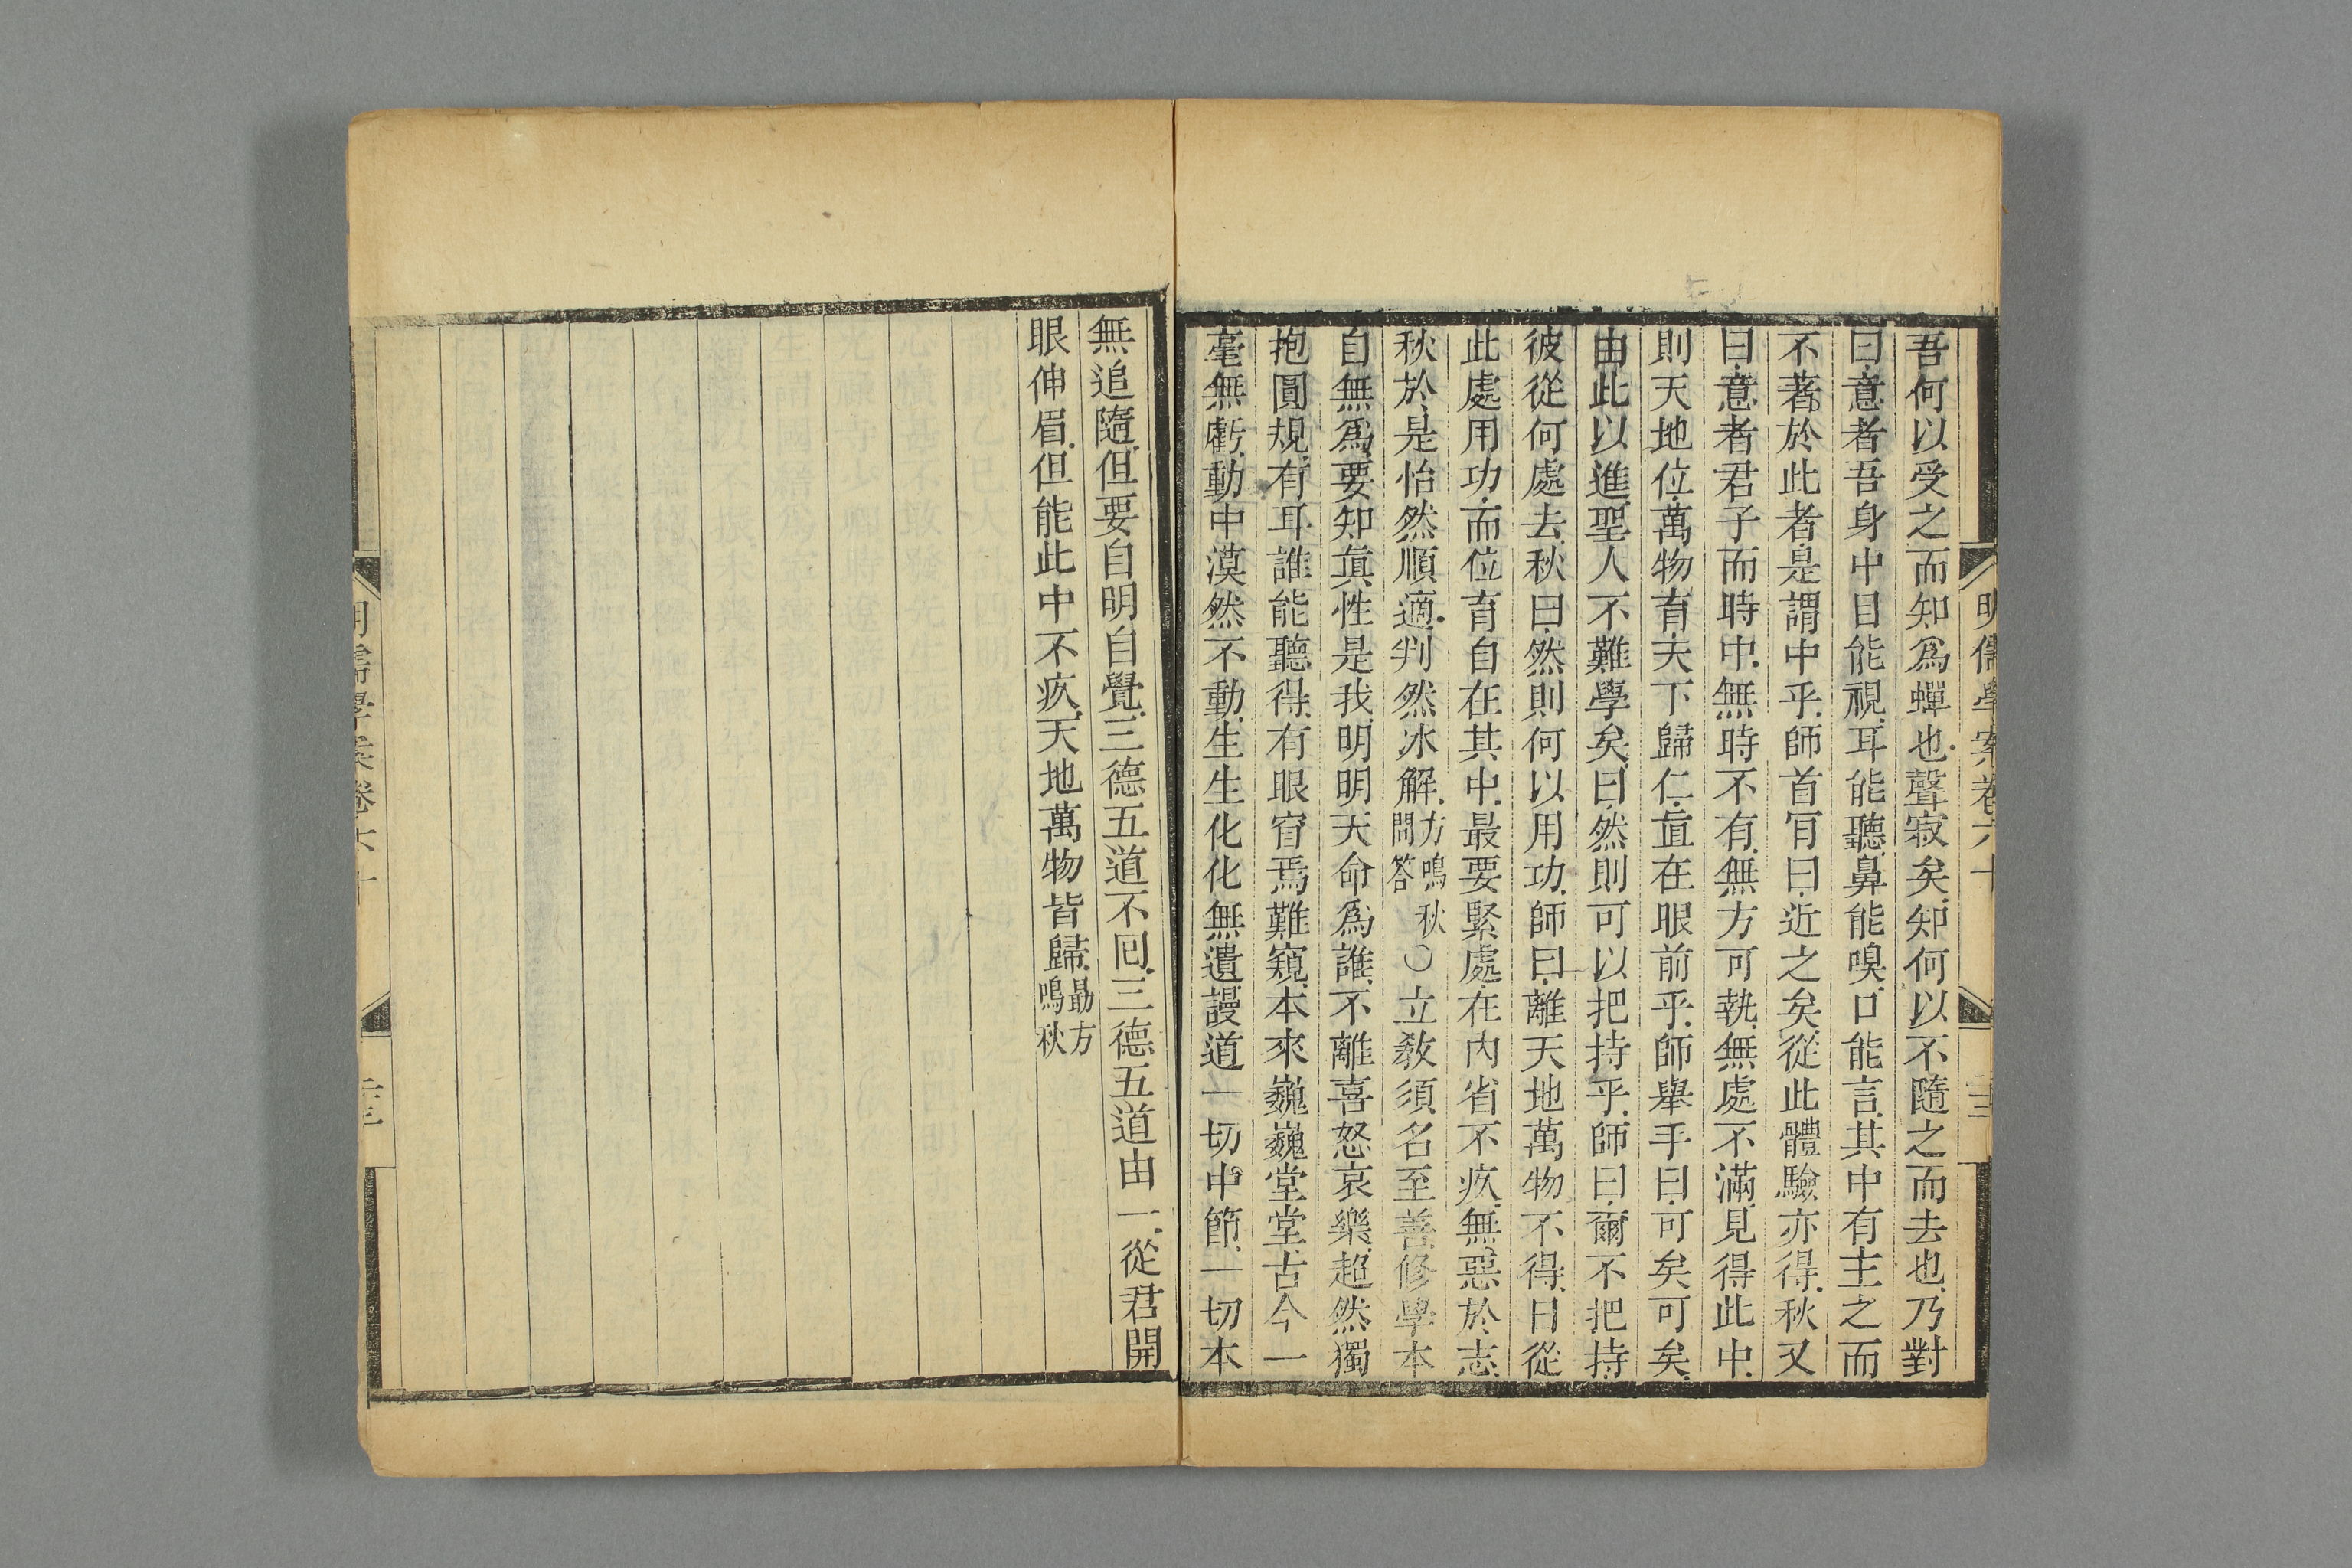 明儒學案卷六十
吾何以受之而知爲蟬也聲寂矣知何以不隨之而去也乃對
曰意者吾身中目能視耳能聽鼻能嗅口能言其中有主之而
不著於此者是謂中乎師首肎曰近之矣從此體驗亦得秋又
曰意者君子而時中無時不有無方可執無處不滿見得此中
則天地位萬物育天下歸仁直在眼前乎師舉手曰可矣可矣
由此以進聖人不難學矣曰然則可以把持乎師曰爾不把持
彼從何處去秋曰然則何以用功師曰離天地萬物不得日從
此處用功而位育自在其中最要緊處在內省不疚無惡於志
秋於是怡然順適判然冰解方鳴秋問答〇立敎須名至善修學本
自無爲要知眞性是我明明天命爲誰不離喜怒哀樂超然獨
抱圓規有耳誰能聽得有眼窅焉難窺本來巍巍堂堂古今一
毫無虧動中漠然不動生生化化無遺謾道一切中節一切本
無追隨但要自明自覺三德五道不回三德五道由一從君開
眼伸眉但能此中不疚天地萬物皆歸勗方鳴秋
明儒學案卷六十